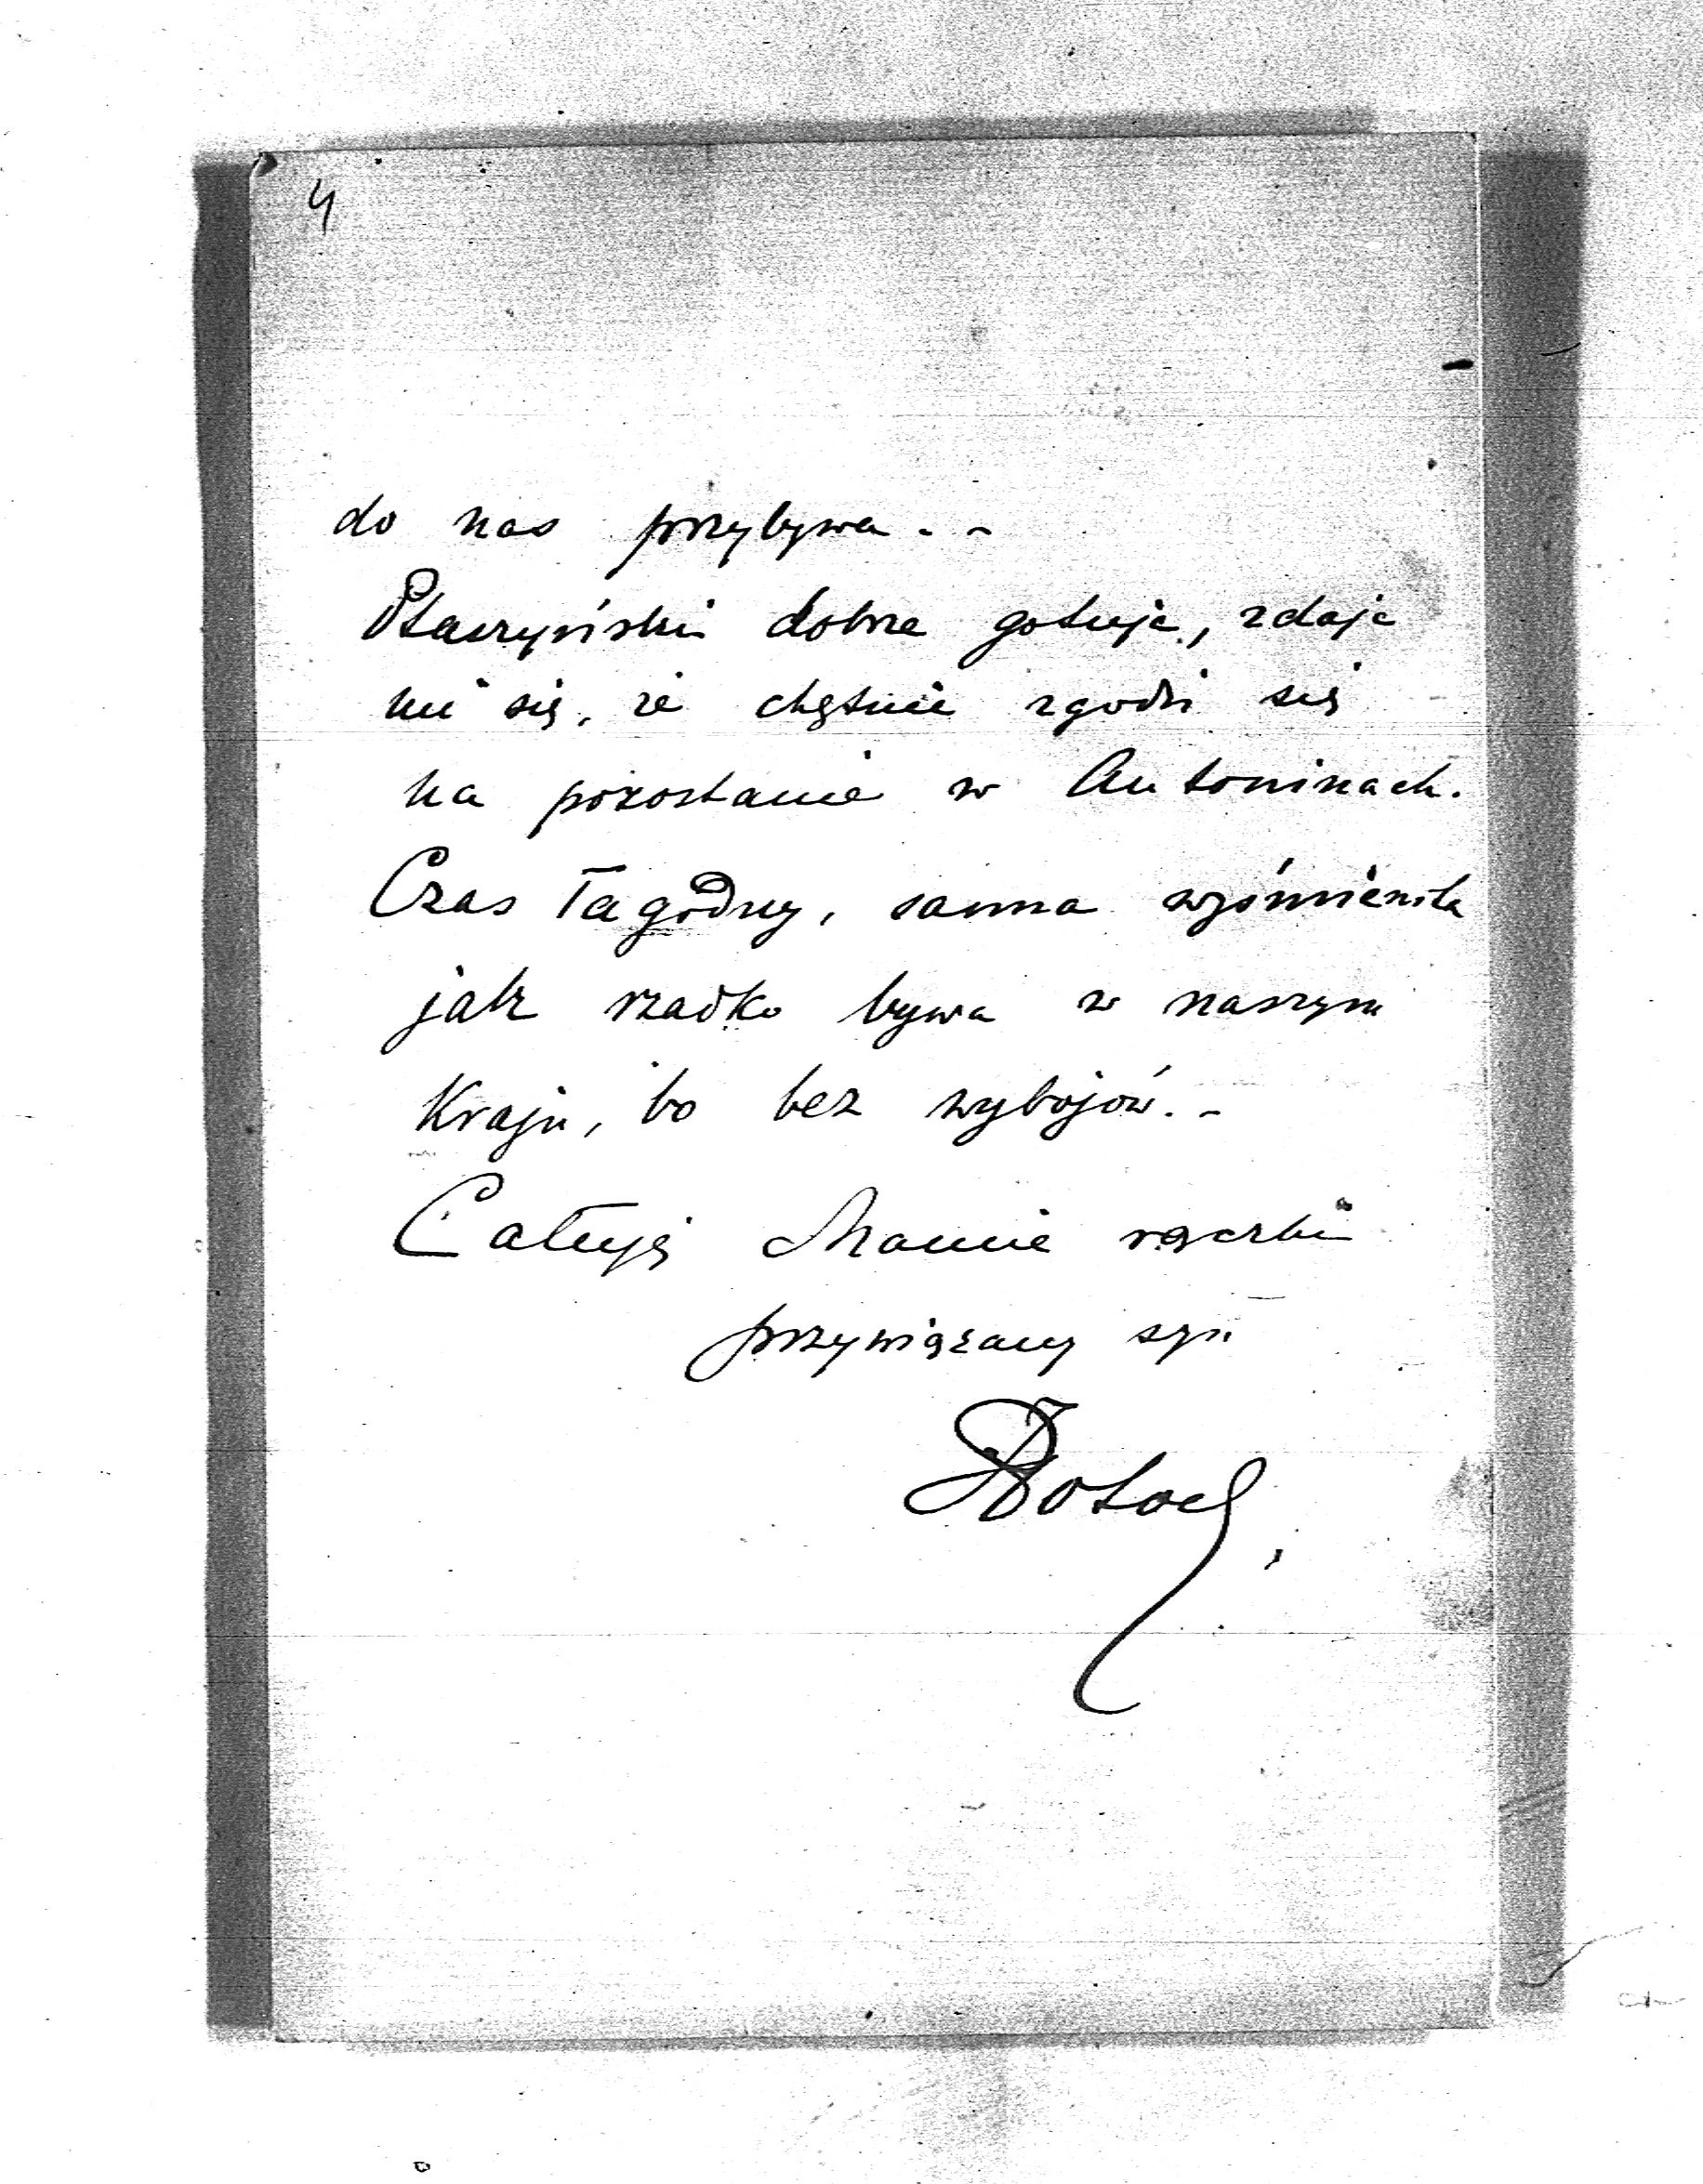 4
do nas przybywa. -
Ptaszyński dobrze gotuje, zdaje
mi się, że chętnie zgodzi się
na pozostanie w Antoninach.
Czas łagodny, sanna wyśmienita
jak rzadko bywa w naszym
Kraju, bo bez wybojów. -
Całuję Mamie rączki
przywiązany syn